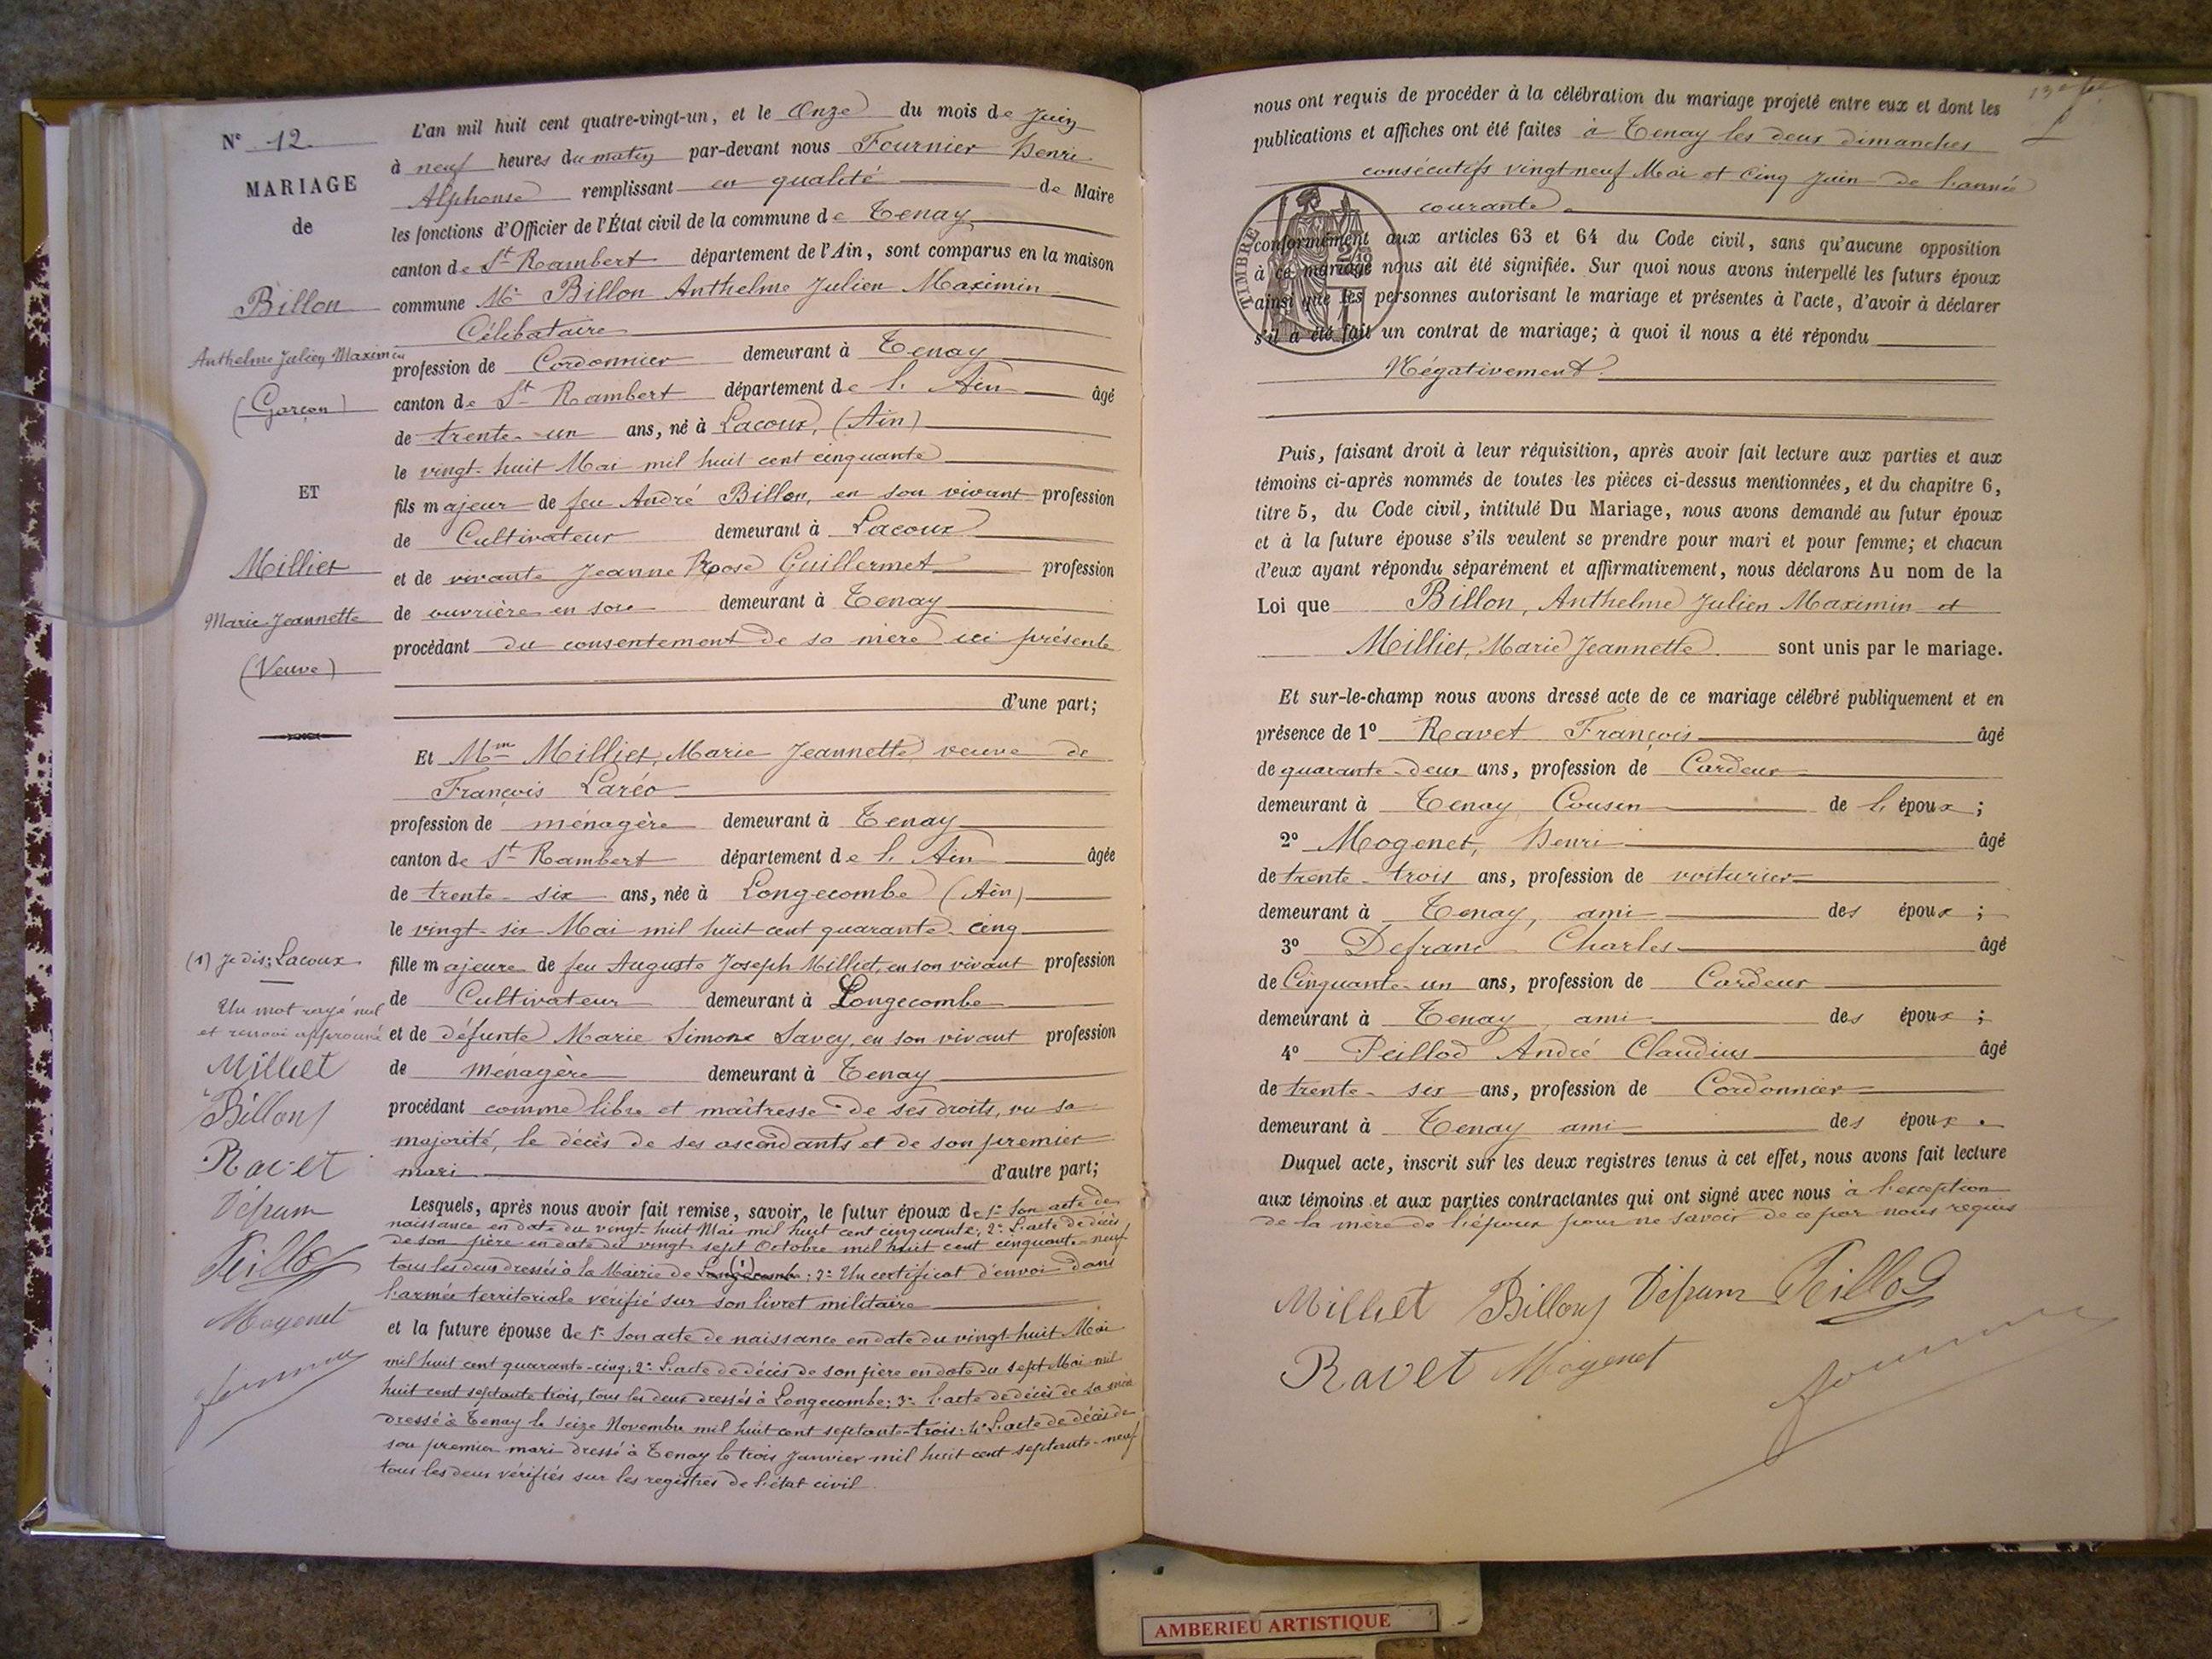 N° 12.
MARIAGE
de
Billon
Anthelme Julien Maximin
(Garçon)
ET
Milliet
Marie Jeannette
(Veuve)
(1) Je dis: Lacoux
Un mot rayé nul
et renvoi approuvé
Milliet
Billon
Ravet
Peillod
Mogenet
L'an mil huit cent quatre-vingt-un, et le Onze du mois de Juin
à neuf heures du matin par-devant nous Fournier Henri
Alphonse remplissant en qualité de Maire
les fonctions d'Officier de l'État civil de la commune de Tenay
canton de St Rambert département de l'Ain, sont comparus en la maison
commune Mr Billon Anthelme Julien Maximin
Célibataire
profession de Cordonnier demeurant à Tenay
canton de St Rambert département de l'Ain âgé
de trente-un ans, né à Lacoux, (Ain)
le vingt-huit Mai mil huit cent cinquante
fils majeur de feu André Billon, en son vivant profession
de Cultivateur demeurant à Lacoux
et de vivante Jeanne Rose Guillermet profession
de ouvrière en soie demeurant à Tenay
procédant du consentement de sa mère ici présente
d'une part;
Et Mme Milliet, Marie Jeannette veuve de
François Laréo
profession de ménagère demeurant à Tenay
canton de St Rambert département de l'Ain âgée
de trente-six ans, née à Longecombe (Ain)
le vingt-six Mai mil huit cent quarante-cinq
fille majeure de feu Auguste Joseph Milliet, en son vivant profession
de Cultivateur demeurant à Longecombe
et de défunte Marie Simone Savey, en son vivant profession
de Ménagère demeurant à Tenay
procédant comme libre et maîtresse de ses droits, vu sa
majorité, le décès de ses ascendants et de son premier
mari d'autre part;
Lesquels, après nous avoir fait remise, savoir, le futur époux de 1° Son acte de
naissance en date du vingt-huit Mai mil huit cent cinquante; 2° L'acte de décès
de son père en date du vingt-sept Octobre mil huit cent cinquante-neuf
tous les deux dressés à la Mairie de Longecombe (1); 3° Un certificat d'envoi dans
l'armée territoriale vérifié sur son livret militaire
et la future épouse de 1° Son acte de naissance en date du vingt-huit Mai
mil huit cent quarante-cinq; 2° L'acte de décès de son père en date du sept Mai mil
huit cent septante trois, tous les deux dressés à Longecombe; 3° l'acte de décès de sa mère
dressé à Tenay le seize Novembre mil huit cent septante-trois; 4° L'acte de décès de
son premier mari dressé à Tenay le trois Janvier mil huit cent septante-neuf
tous les deux vérifiés sur les registres de l'état civil
nous ont requis de procéder à la célébration du mariage projeté entre eux et dont les
publications et affiches ont été faites à Tenay les deux dimanches
consécutifs vingt neuf Mai et cinq Juin de l'année
courante
TIMBRE
conformément aux articles 63 et 64 du Code civil, sans qu'aucune opposition
à ce mariage nous ait été signifiée. Sur quoi nous avons interpellé les futurs époux
ainsi que les personnes autorisant le mariage et présentes à l'acte, d'avoir à déclarer
s'il a été fait un contrat de mariage; à quoi il nous a été répondu
Négativement.
Puis, faisant droit à leur réquisition, après avoir fait lecture aux parties et aux
témoins ci-après nommés de toutes les pièces ci-dessus mentionnées, et du chapitre 6,
titre 5, du Code civil, intitulé Du Mariage, nous avons demandé au futur époux
et à la future épouse s'ils veulent se prendre pour mari et pour femme; et chacun
d'eux ayant répondu séparément et affirmativement, nous déclarons Au nom de la
Loi que Billon, Anthelme Julien Maximin et
Milliet, Marie Jeannette sont unis par le mariage.
Et sur-le-champ nous avons dressé acte de ce mariage célébré publiquement et en
présence de 1° Ravet François âgé
de quarante-deux ans, profession de Cardeur
demeurant à Tenay Cousin de l'époux;
2° Mogenet, Henri âgé
de trente-trois ans, profession de voiturier
demeurant à Tenay, ami des époux;
3° Defranc Charles âgé
de Cinquante-un ans, profession de Cardeur
demeurant à Tenay ami des époux;
4° Peillod André Claudius âgé
de trente-six ans, profession de Cordonnier
demeurant à Tenay ami des époux.
Duquel acte, inscrit sur les deux registres tenus à cet effet, nous avons fait lecture
aux témoins et aux parties contractantes qui ont signé avec nous à l'exception
de la mère de l'époux pour ne savoir de ce par nous requis
Milliet Billon Peillod
Ravet Mogenet
AMBERIEU ARTISTIQUE